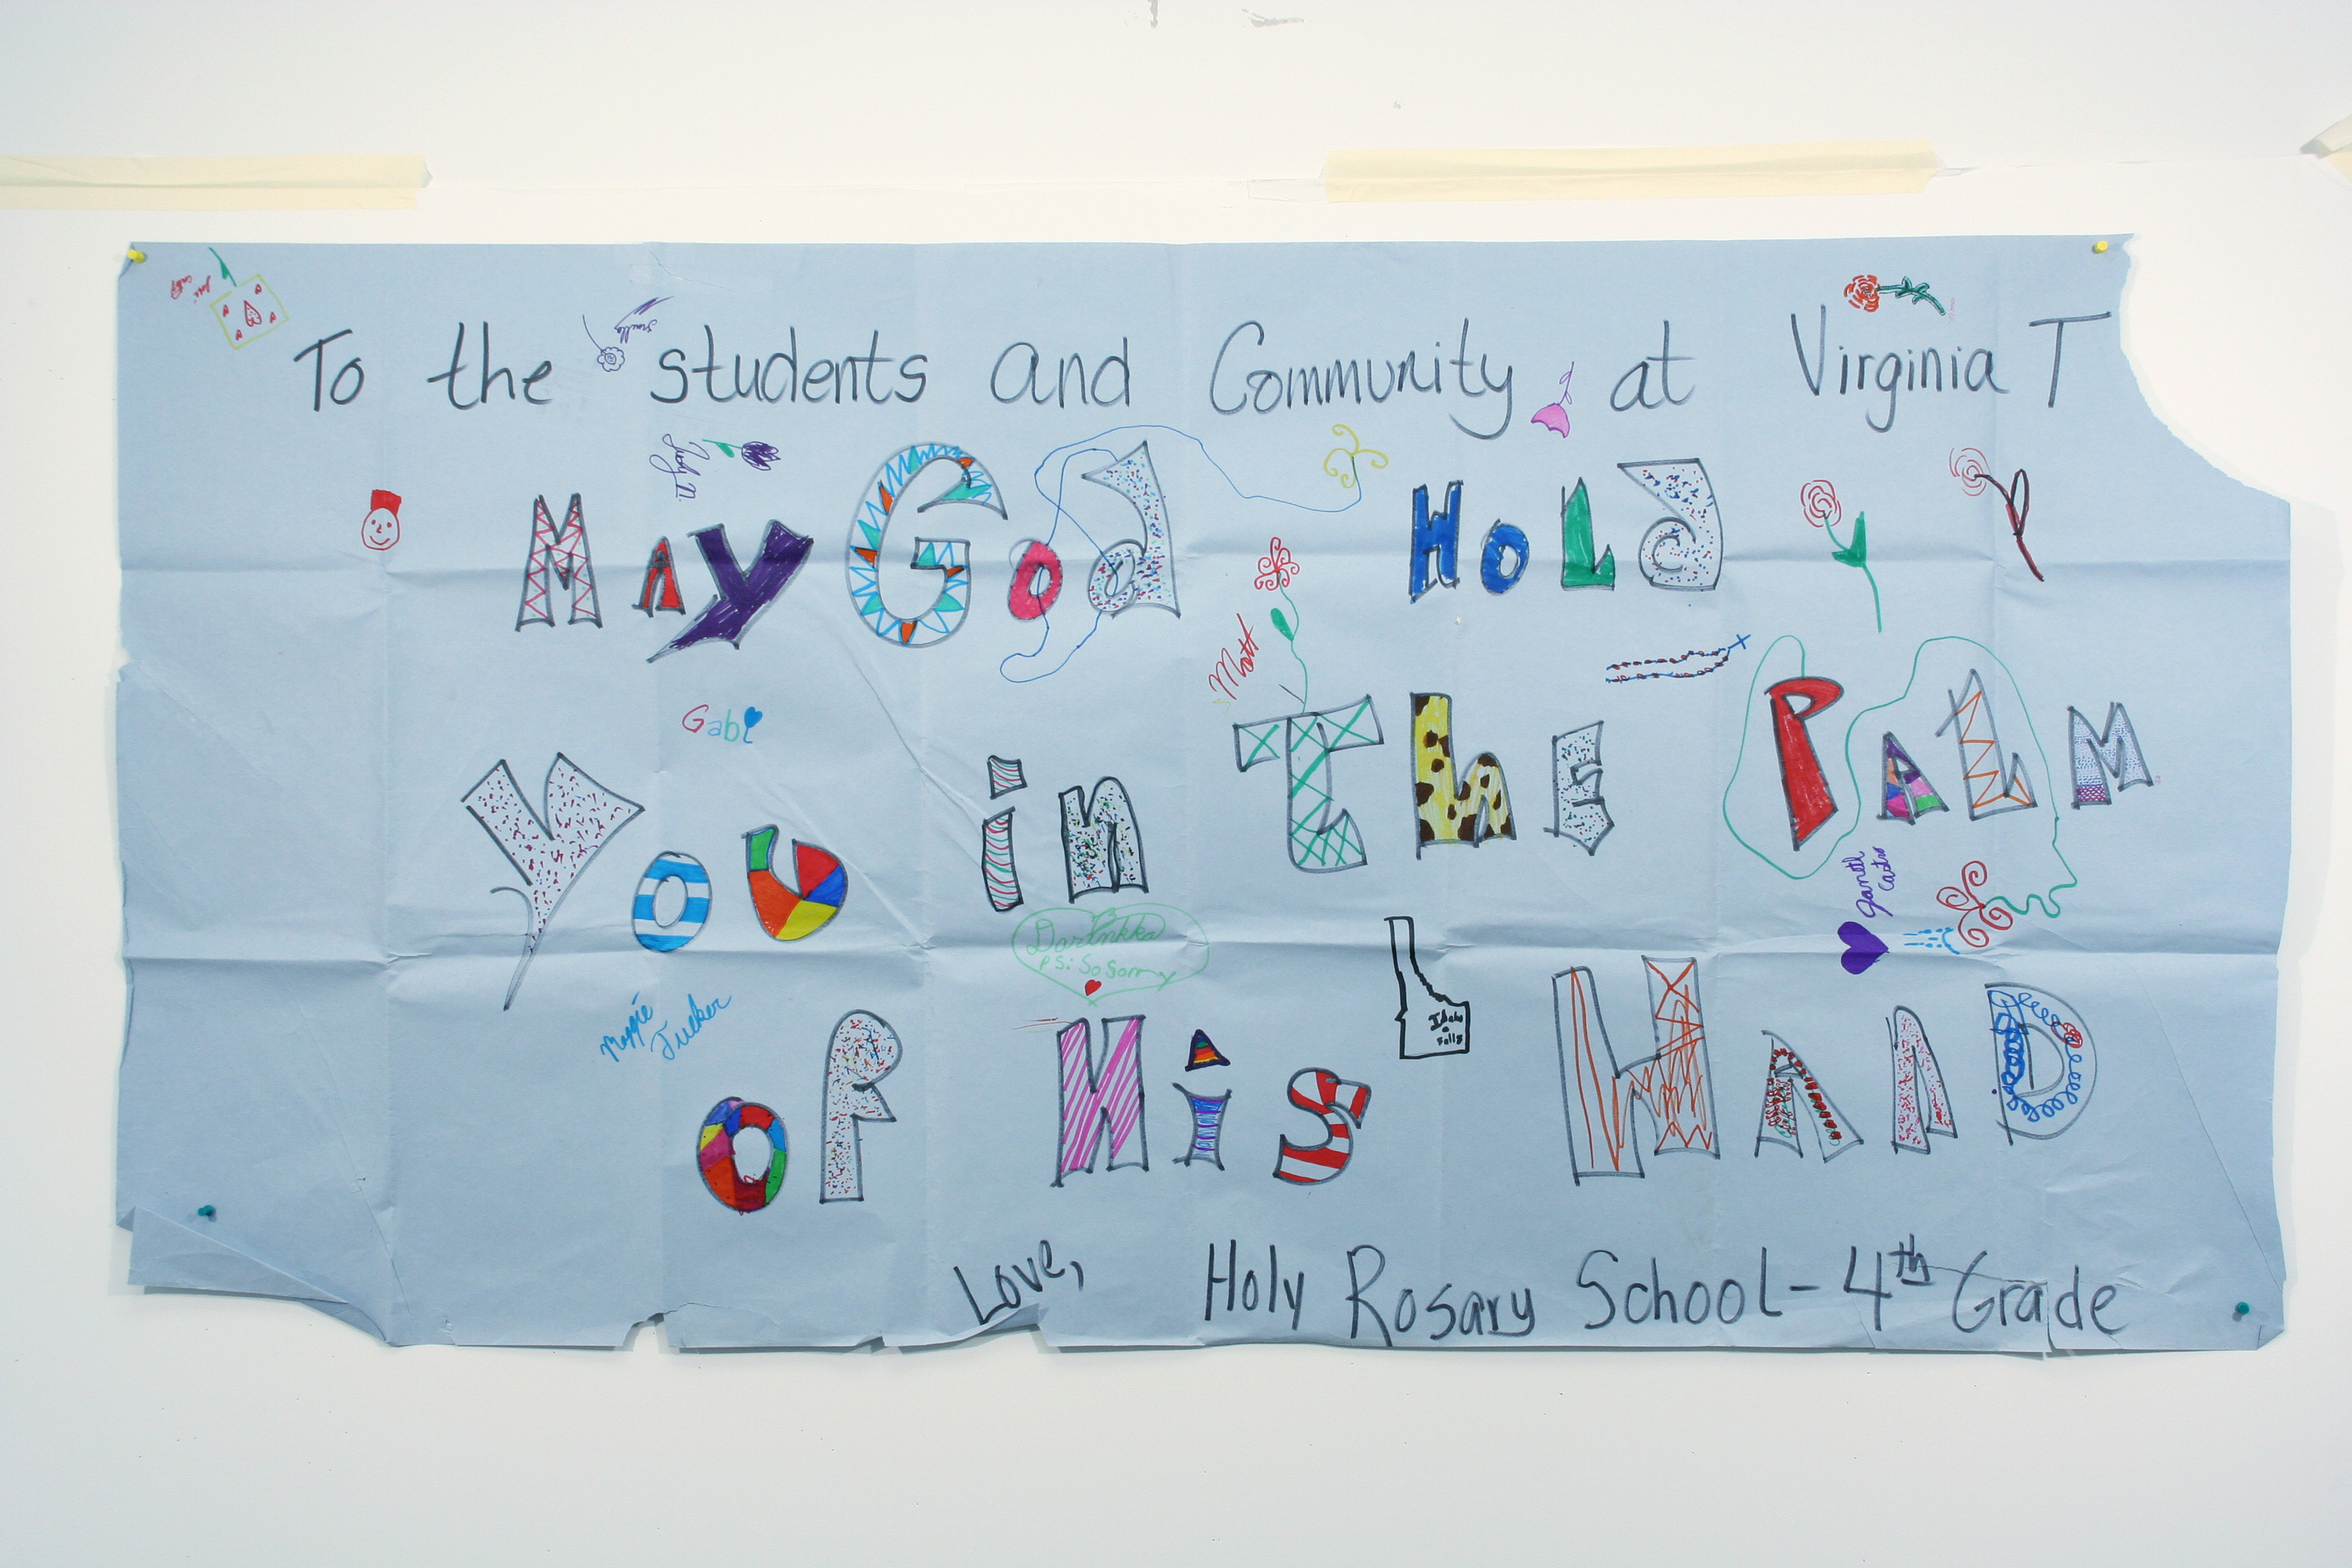 To the students and Community at Virginia T
Judy D.
May God Hold
Matt
Gabi
You in The PALM
Janetl Castro
Darinkka
PS: So Sorry
Maggie Tucker
Idaho Falls
of His HAnD
Love, Holy Rosary School - 4th Grade